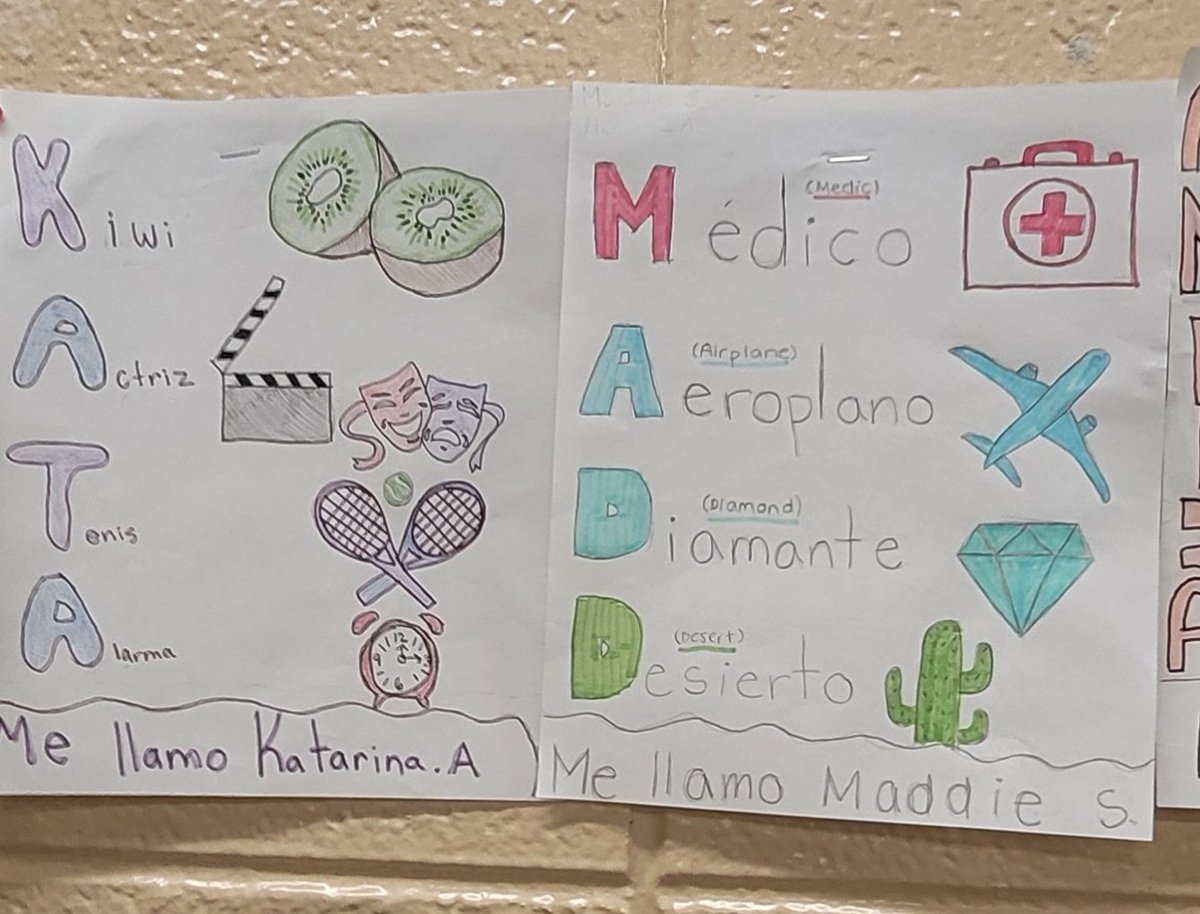 Kiwi
Actriz
Tenis
Alarma
Me llamo Katarina.A
Médico
(Medic)
Aeroplano
(Airplane)
Diamante
(Diamond)
Desierto
(Desert)
Me llamo Maddie S.